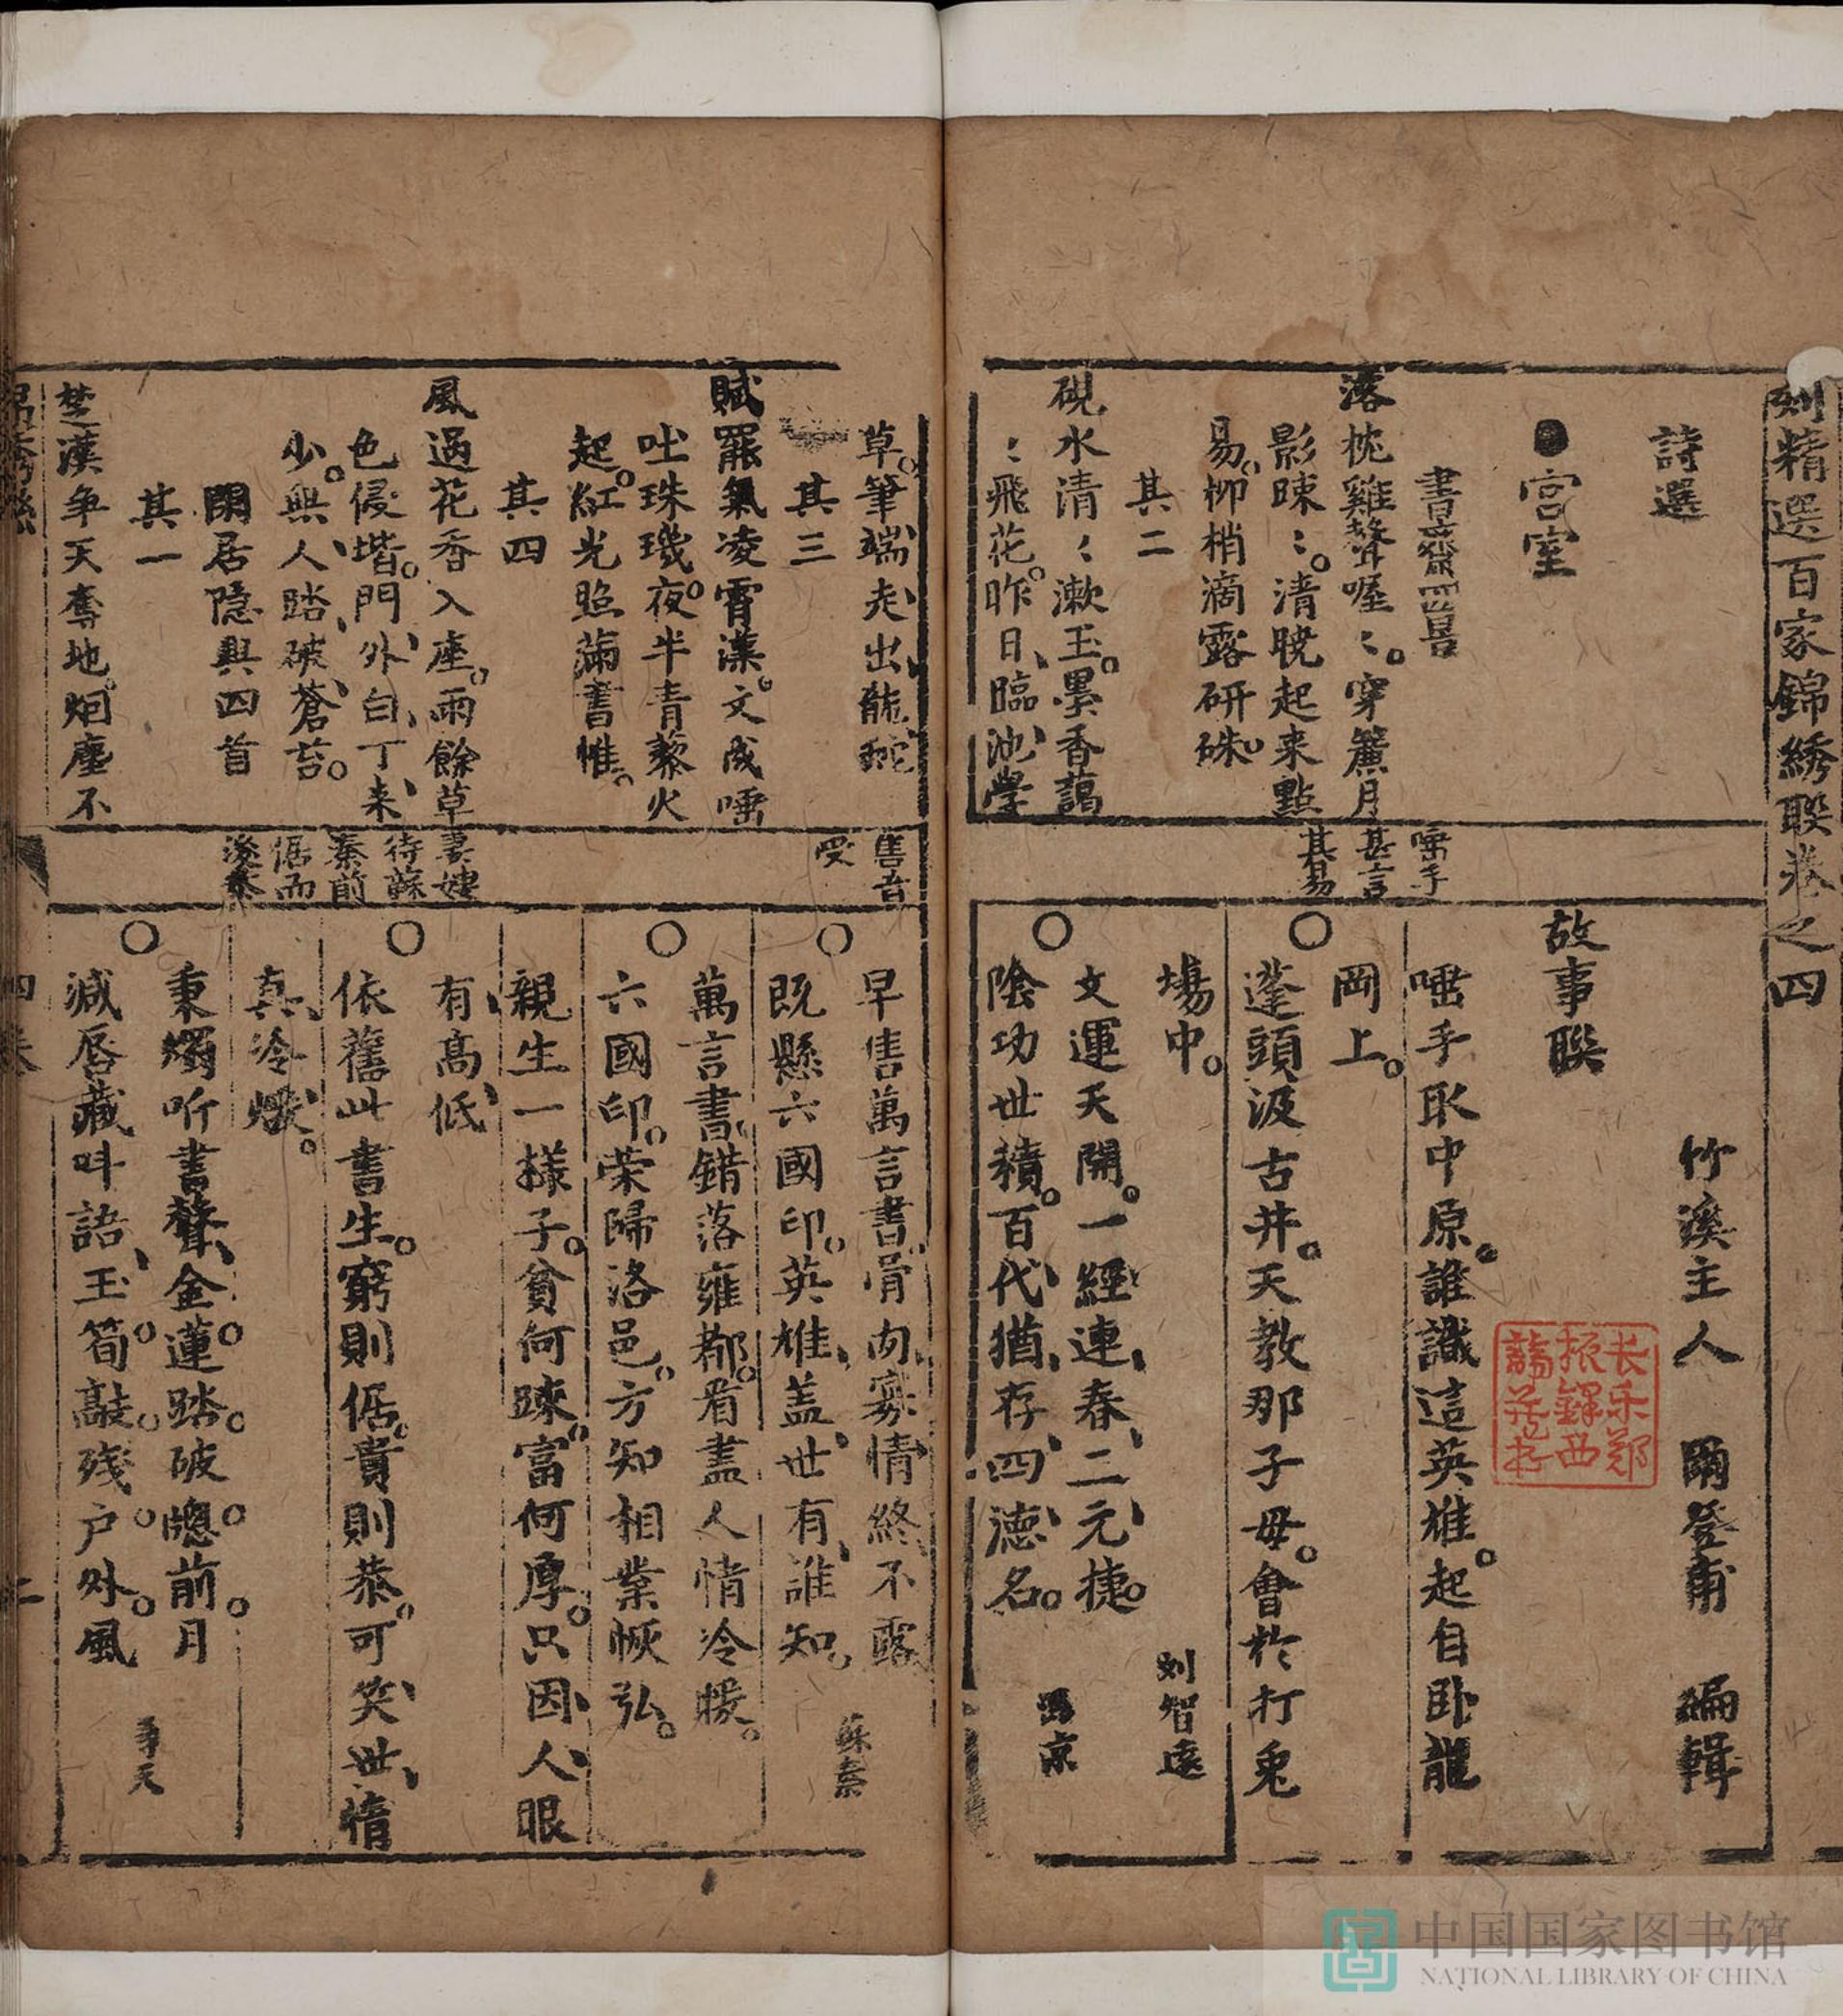 刻精選百家錦綉聮卷之四
竹溪主人 爾登甫 編輯
詩選
宮室
書齋四景
落枕雞聲喔〻穿簾月
影㫼〻清曉起来點
易柳梢滴露研硃
其二
硯水清〻漱玉墨香藹
〻飛花昨日臨池學
唾手
甚言
其易
故事聮
唾手取中原誰識這英雄起自卧龍
岡上
蓬頭汲古井天教那子母會於打兎
塲中
刘智遠
文運天開一經連春二元捷
陰功世積百代猶存四德名
馮京
长乐郑
振铎西
諦藏书
草筆端走出龍蛇
其三
賦罷氣凌霄漢文成唾
吐珠璣夜半青藜火
起紅光照滿書帷
其四
風過花香入座雨餘草
色侵堦門外白丁来
少與人踏破蒼苔
閑居隐興四首
其一
楚漢争天奪地烟塵不
售音
受
妻嫂
待蘇
秦前
倨而
後恭
早售萬言書骨肉寡情終不露
既懸六國印英雄盖世有誰知
蘇秦
萬言書錯落雍都看盡人情冷暖
六國印荣歸洛邑方知相業恢弘
親生一㨾子貧何踈富何厚只因人眼
有髙低
依舊此書生窮則倨貴則恭可笑世情
真冷煖
秉燭听書聲金蓮踏破䆫前月
減唇藏呌語玉筍敲殘户外風
争天
四卷
二
中国国家图书馆
NATIONAL LIBRARY OF CHINA